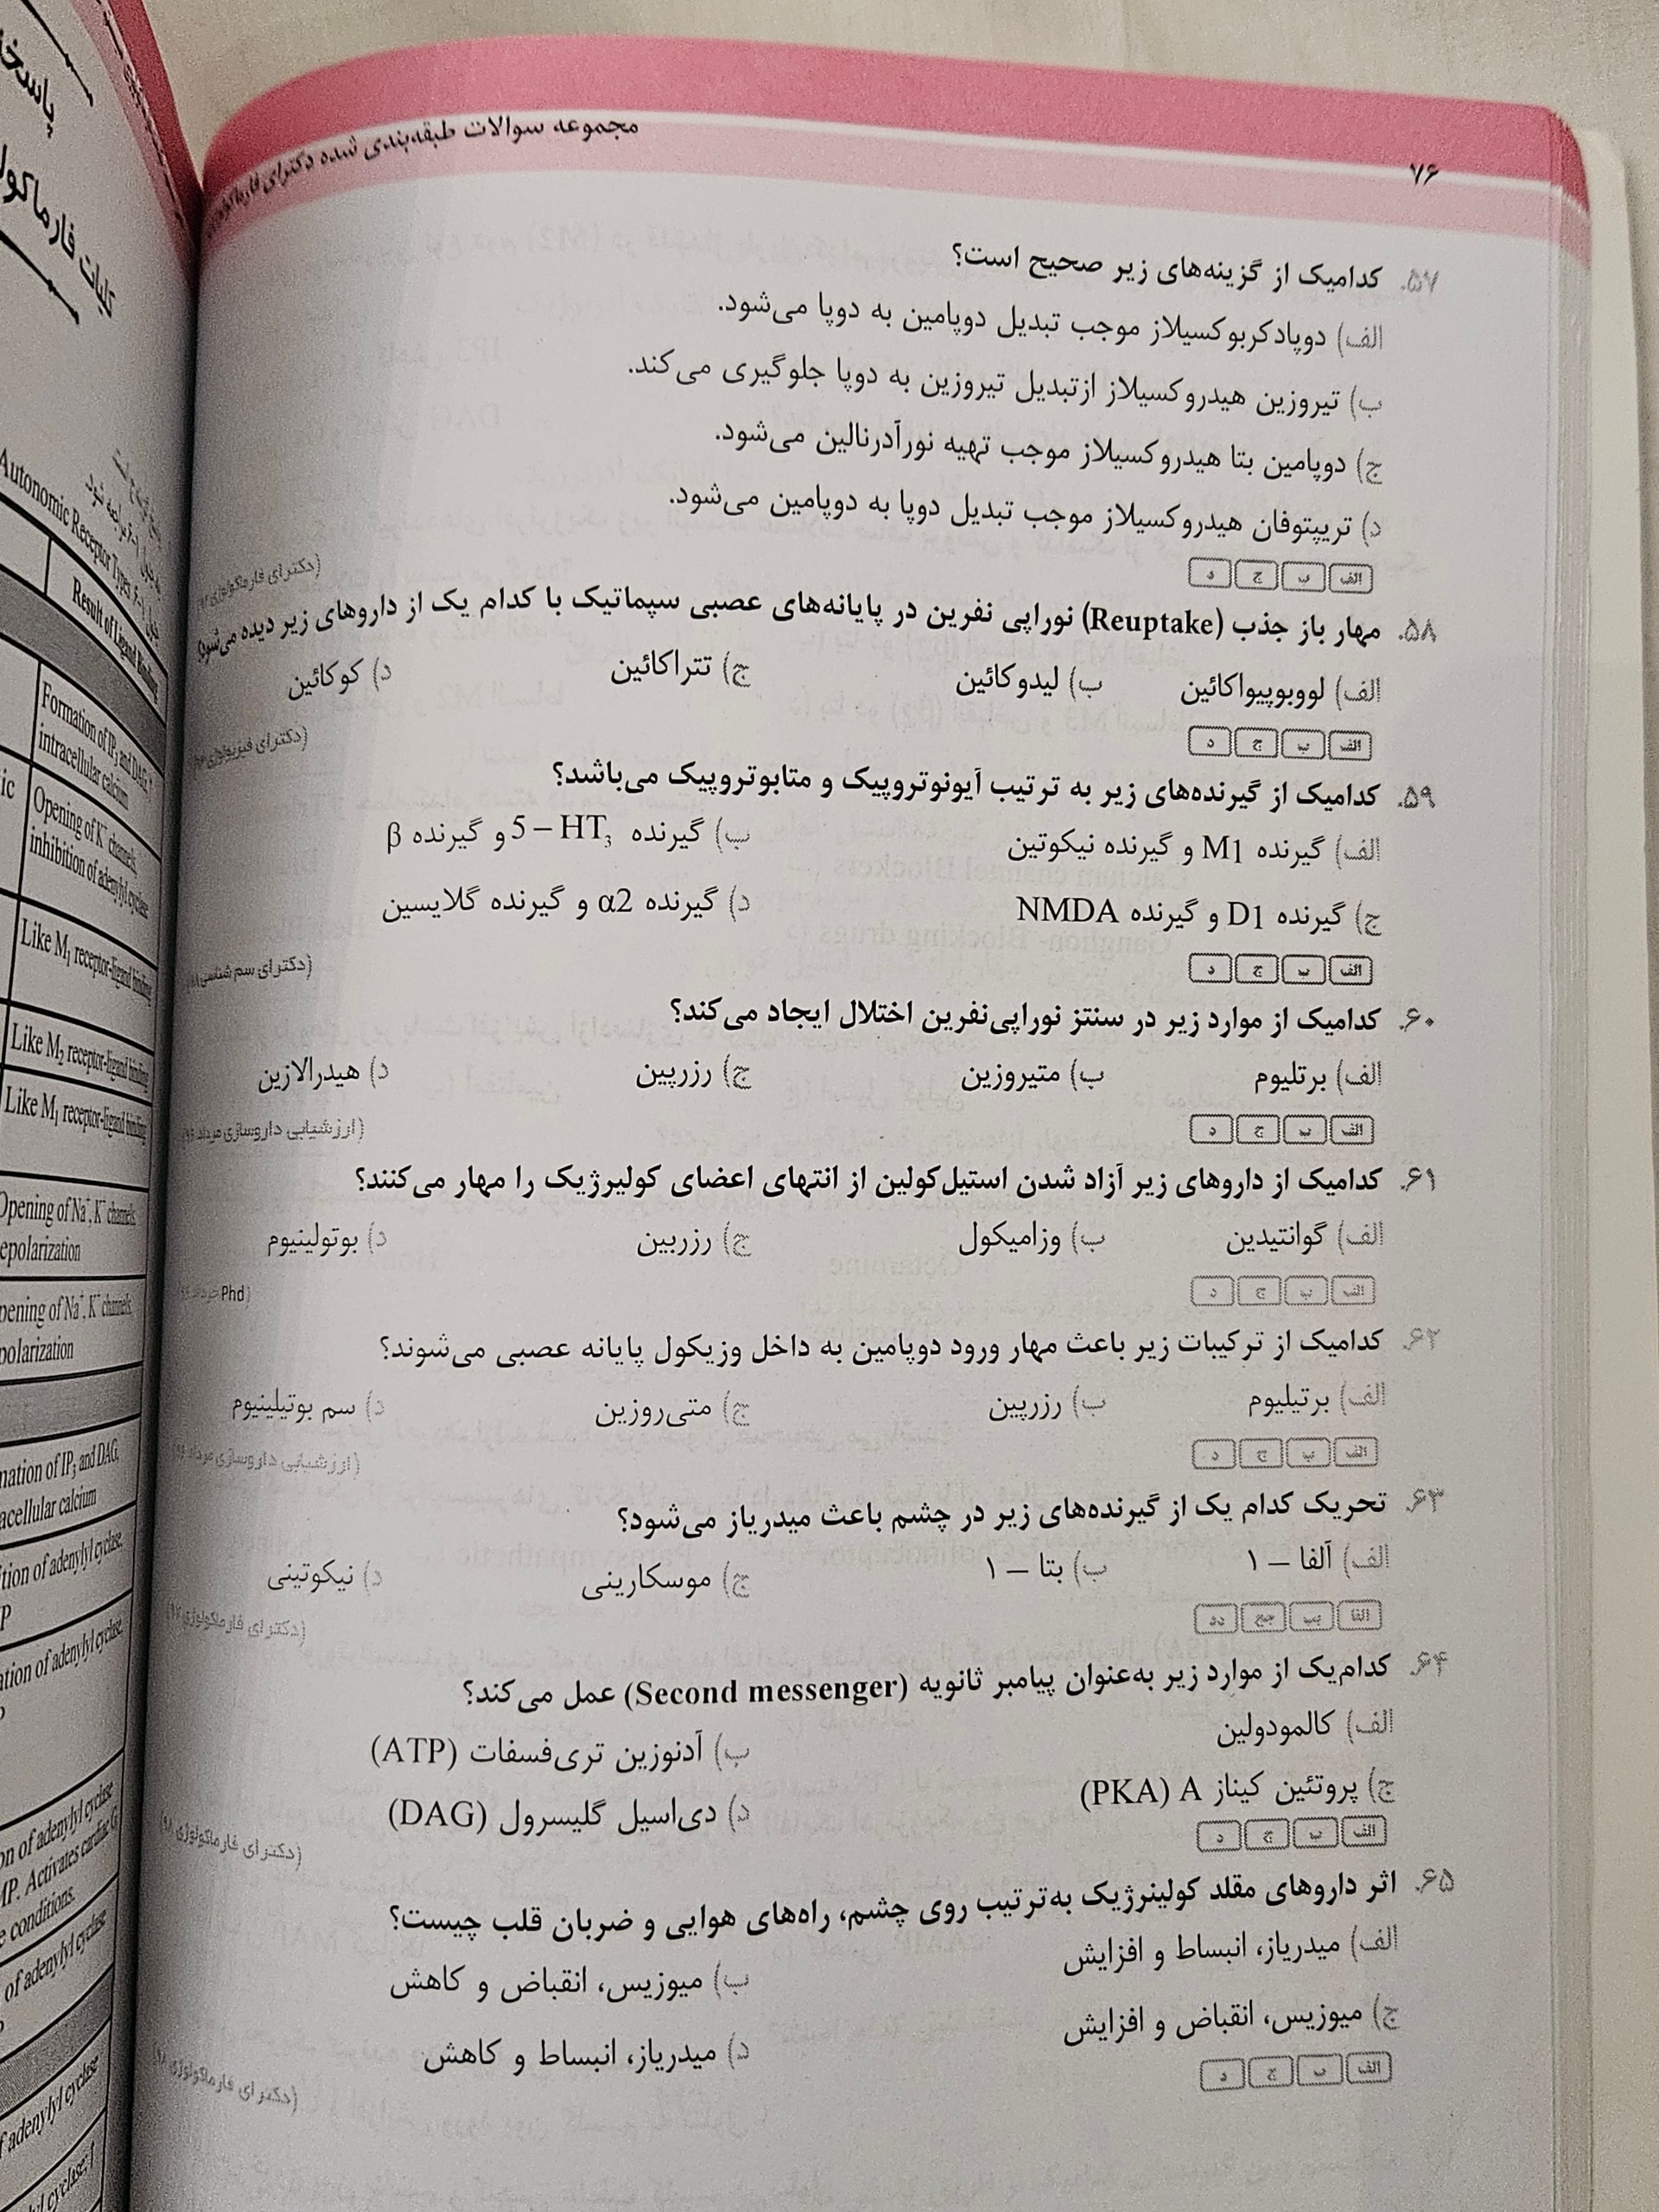 مجموعه سوالات طبقه‌بندی شده دکترای فارماکولوژی
۷۶
۵۷. کدامیک از گزینه‌های زیر صحیح است؟
الف) دوپادکربوکسیلاز موجب تبدیل دوپامین به دوپا می‌شود.
ب) تیروزین هیدروکسیلاز ازتبدیل تیروزین به دوپا جلوگیری می‌کند.
ج) دوپامین بتا هیدروکسیلاز موجب تهیه نورآدرنالین می‌شود.
د) تریپتوفان هیدروکسیلاز موجب تبدیل دوپا به دوپامین می‌شود.
الف ب ج د
(دکترای فارماکولوژی
۵۸. مهار باز جذب (Reuptake) نوراپی نفرین در پایانه‌های عصبی سپماتیک با کدام یک از داروهای زیر دیده می‌شود؟
الف) لووبوپیواکائین ب) لیدوکائین ج) تتراکائین د) کوکائین
الف ب ج د
(دکترای فیزیولوژی
۵۹. کدامیک از گیرنده‌های زیر به ترتیب آیونوتروپیک و متابوتروپیک می‌باشد؟
الف) گیرنده M1 و گیرنده نیکوتین ب) گیرنده 5-HT₃ و گیرنده β
ج) گیرنده D1 و گیرنده NMDA د) گیرنده α2 و گیرنده گلایسین
الف ب ج د
(دکترای سم شناسی
۶۰. کدامیک از موارد زیر در سنتز نوراپی‌نفرین اختلال ایجاد می‌کند؟
الف) برتلیوم ب) متیروزین ج) رزرپین د) هیدرالازین
الف ب ج د
(ارزشیابی داروسازی مرداد
۶۱. کدامیک از داروهای زیر آزاد شدن استیل‌کولین از انتهای اعضای کولیرژیک را مهار می‌کنند؟
الف) گوانتیدین ب) وزامیکول ج) رزربین د) بوتولینیوم
الف ب ج د
(Phd خرداد
۶۲. کدامیک از ترکیبات زیر باعث مهار ورود دوپامین به داخل وزیکول پایانه عصبی می‌شوند؟
الف) برتیلیوم ب) رزرپین ج) متی‌روزین د) سم بوتیلینیوم
الف ب ج د
(ارزشیابی داروسازی مرداد
۶۳. تحریک کدام یک از گیرنده‌های زیر در چشم باعث میدریاز می‌شود؟
الف) آلفا – ۱ ب) بتا – ۱ ج) موسکارینی د) نیکوتینی
(دکترای فارماکولوژی ۹۷)
۶۴. کدام‌یک از موارد زیر به‌عنوان پیامبر ثانویه (Second messenger) عمل می‌کند؟
الف) کالمودولین ب) آدنوزین تری‌فسفات (ATP)
ج) پروتئین کیناز A (PKA) د) دی‌اسیل گلیسرول (DAG)
الف ب ج د
(دکترای فارماکولوژی ۹۸)
۶۵. اثر داروهای مقلد کولینرژیک به‌ترتیب روی چشم، راه‌های هوایی و ضربان قلب چیست؟
الف) میدریاز، انبساط و افزایش ب) میوزیس، انقباض و کاهش
ج) میوزیس، انقباض و افزایش د) میدریاز، انبساط و کاهش
الف ب ج د
(دکترای فارماکولوژی ۹۸)
کلیات
Autonomic Receptor Types
Result of Ligand Binding
Formation of IP₃ and DAG,
intracellular calcium
Opening of K⁺ channels,
inhibition of adenylyl cyclase
Like M₁ receptor-ligand binding
Like M₂ receptor-ligand binding
Like M₁ receptor-ligand binding
Opening of Na⁺, K⁺ channels,
epolarization
pening of Na⁺, K⁺ channels,
polarization
mation of IP₃ and DAG,
acellular calcium
ition of adenylyl cyclase,
P
ation of adenylyl cyclase,
on of adenylyl cyclase
MP. Activates cardiac G
e conditions.
of adenylyl cyclase
f adenylyl cyclase